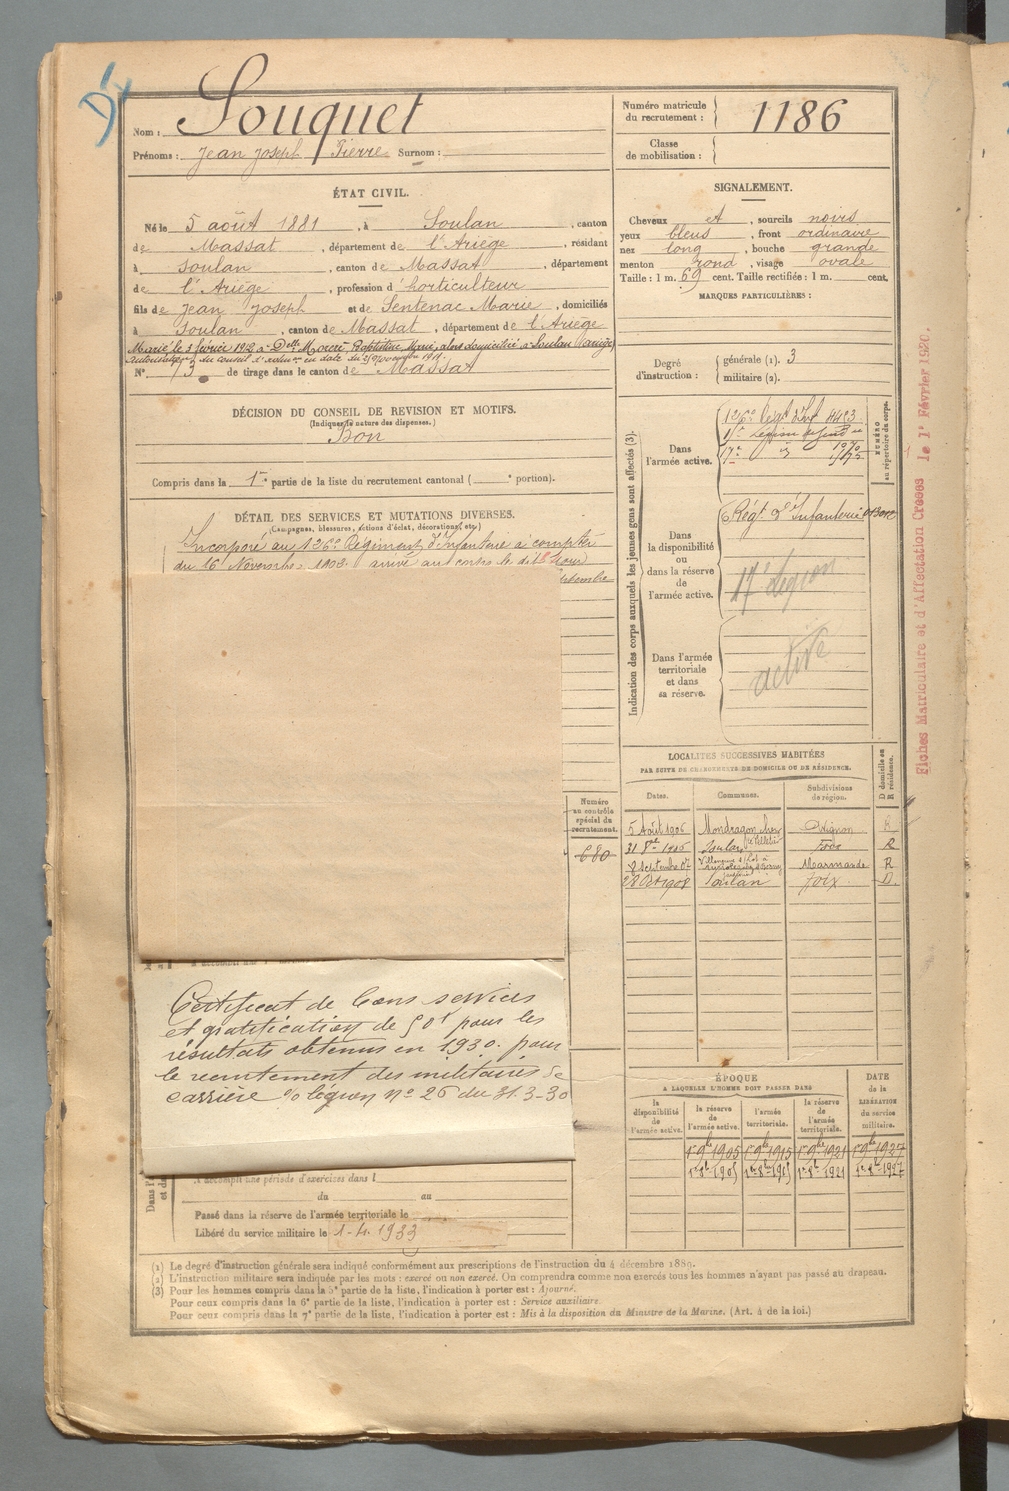 Nom : Souquet
Prénoms : Jean Joseph Pierre Surnom :
Numéro matricule du recrutement : 1186
Classe de mobilisation :
ÉTAT CIVIL.
Né le 5 août 1881, à Soulan, canton
de Massat, département de l'Ariège, résidant
à Soulan, canton de Massat, département
de l'Ariège, profession d'horticulteur
fils de Jean Joseph et de Sentenac Marie, domiciliés
à Soulan, canton de Massat, département de l'Ariège
Marié le 3 février 1912 à Delle Baptistine Marie, alors domiciliée à Soulan (Ariège)
N° 73 de tirage dans le canton de Massat
SIGNALEMENT.
Cheveux et, sourcils noirs
yeux bleus, front ordinaire
nez long, bouche grande
menton rond, visage ovale
Taille : 1 m. 69 cent. Taille rectifiée : 1 m. cent.
MARQUES PARTICULIÈRES :
Degré d'instruction : générale (1). 3
militaire (2).
DÉCISION DU CONSEIL DE REVISION ET MOTIFS.
(Indiquer la nature des dispenses.)
Bon
Compris dans la 1re partie de la liste du recrutement cantonal ( e portion).
DÉTAIL DES SERVICES ET MUTATIONS DIVERSES.
(Campagnes, blessures, actions d'éclat, décorations, etc.)
Incorporé au 126e Régiment d'Infanterie à compter
du 16 Novembre 1902 arrivé au corps le dit jour
Indication des corps auxquels les jeunes gens sont affectés (3).
NUMÉRO au répertoire du corps.
Dans l'armée active.
126e Régt d'Inf
Dans la disponibilité ou dans la réserve de l'armée active.
Régt d'Infanterie
17e Légion
Dans l'armée territoriale et dans sa réserve.
active
LOCALITÉS SUCCESSIVES HABITÉES
PAR SUITE DE CHANGEMENTS DE DOMICILE OU DE RÉSIDENCE.
Dates. Communes. Subdivisions de région. D domicile ou R résidence.
5 Août 1906 Mondragon Avignon R
31 8bre 1906 Soulan Foix R
8 Septembre 07 Marmande R
28 Oct 1908 Soulan Foix D.
Numéro au contrôle spécial du recrutement.
680
Certificat de bons services
et gratification de 50f pour les
résultats obtenus en 1930. pour
le recrutement des militaires de
carrière %o légion n° 26 du 31-3-30
ÉPOQUE
A LAQUELLE L'HOMME DOIT PASSER DANS
DATE de la LIBÉRATION du service militaire.
la disponibilité de l'armée active. la réserve de l'armée active. l'armée territoriale. la réserve de l'armée territoriale.
1er 9bre 1905 1er 9bre 1915 1er 9bre 1921 1er 9bre 1927
1er 8bre 1905 1er 8bre 1915 1er 8bre 1921 1er 8bre 1927
A accompli une période d'exercices dans l
du au
Passé dans la réserve de l'armée territoriale le
Libéré du service militaire le 1-4-1933
(1) Le degré d'instruction générale sera indiqué conformément aux prescriptions de l'instruction du 4 décembre 1889.
(2) L'instruction militaire sera indiquée par les mots : exercé ou non exercé. On comprendra comme non exercés tous les hommes n'ayant pas passé au drapeau.
(3) Pour les hommes compris dans la 5e partie de la liste, l'indication à porter est : Ajourné.
Pour ceux compris dans la 6e partie de la liste, l'indication à porter est : Service auxiliaire.
Pour ceux compris dans la 7e partie de la liste, l'indication à porter est : Mis à la disposition du Ministre de la Marine. (Art. 4 de la loi.)
Fiches Matriculaire et d'Affectation Creees le 1r Février 1920.